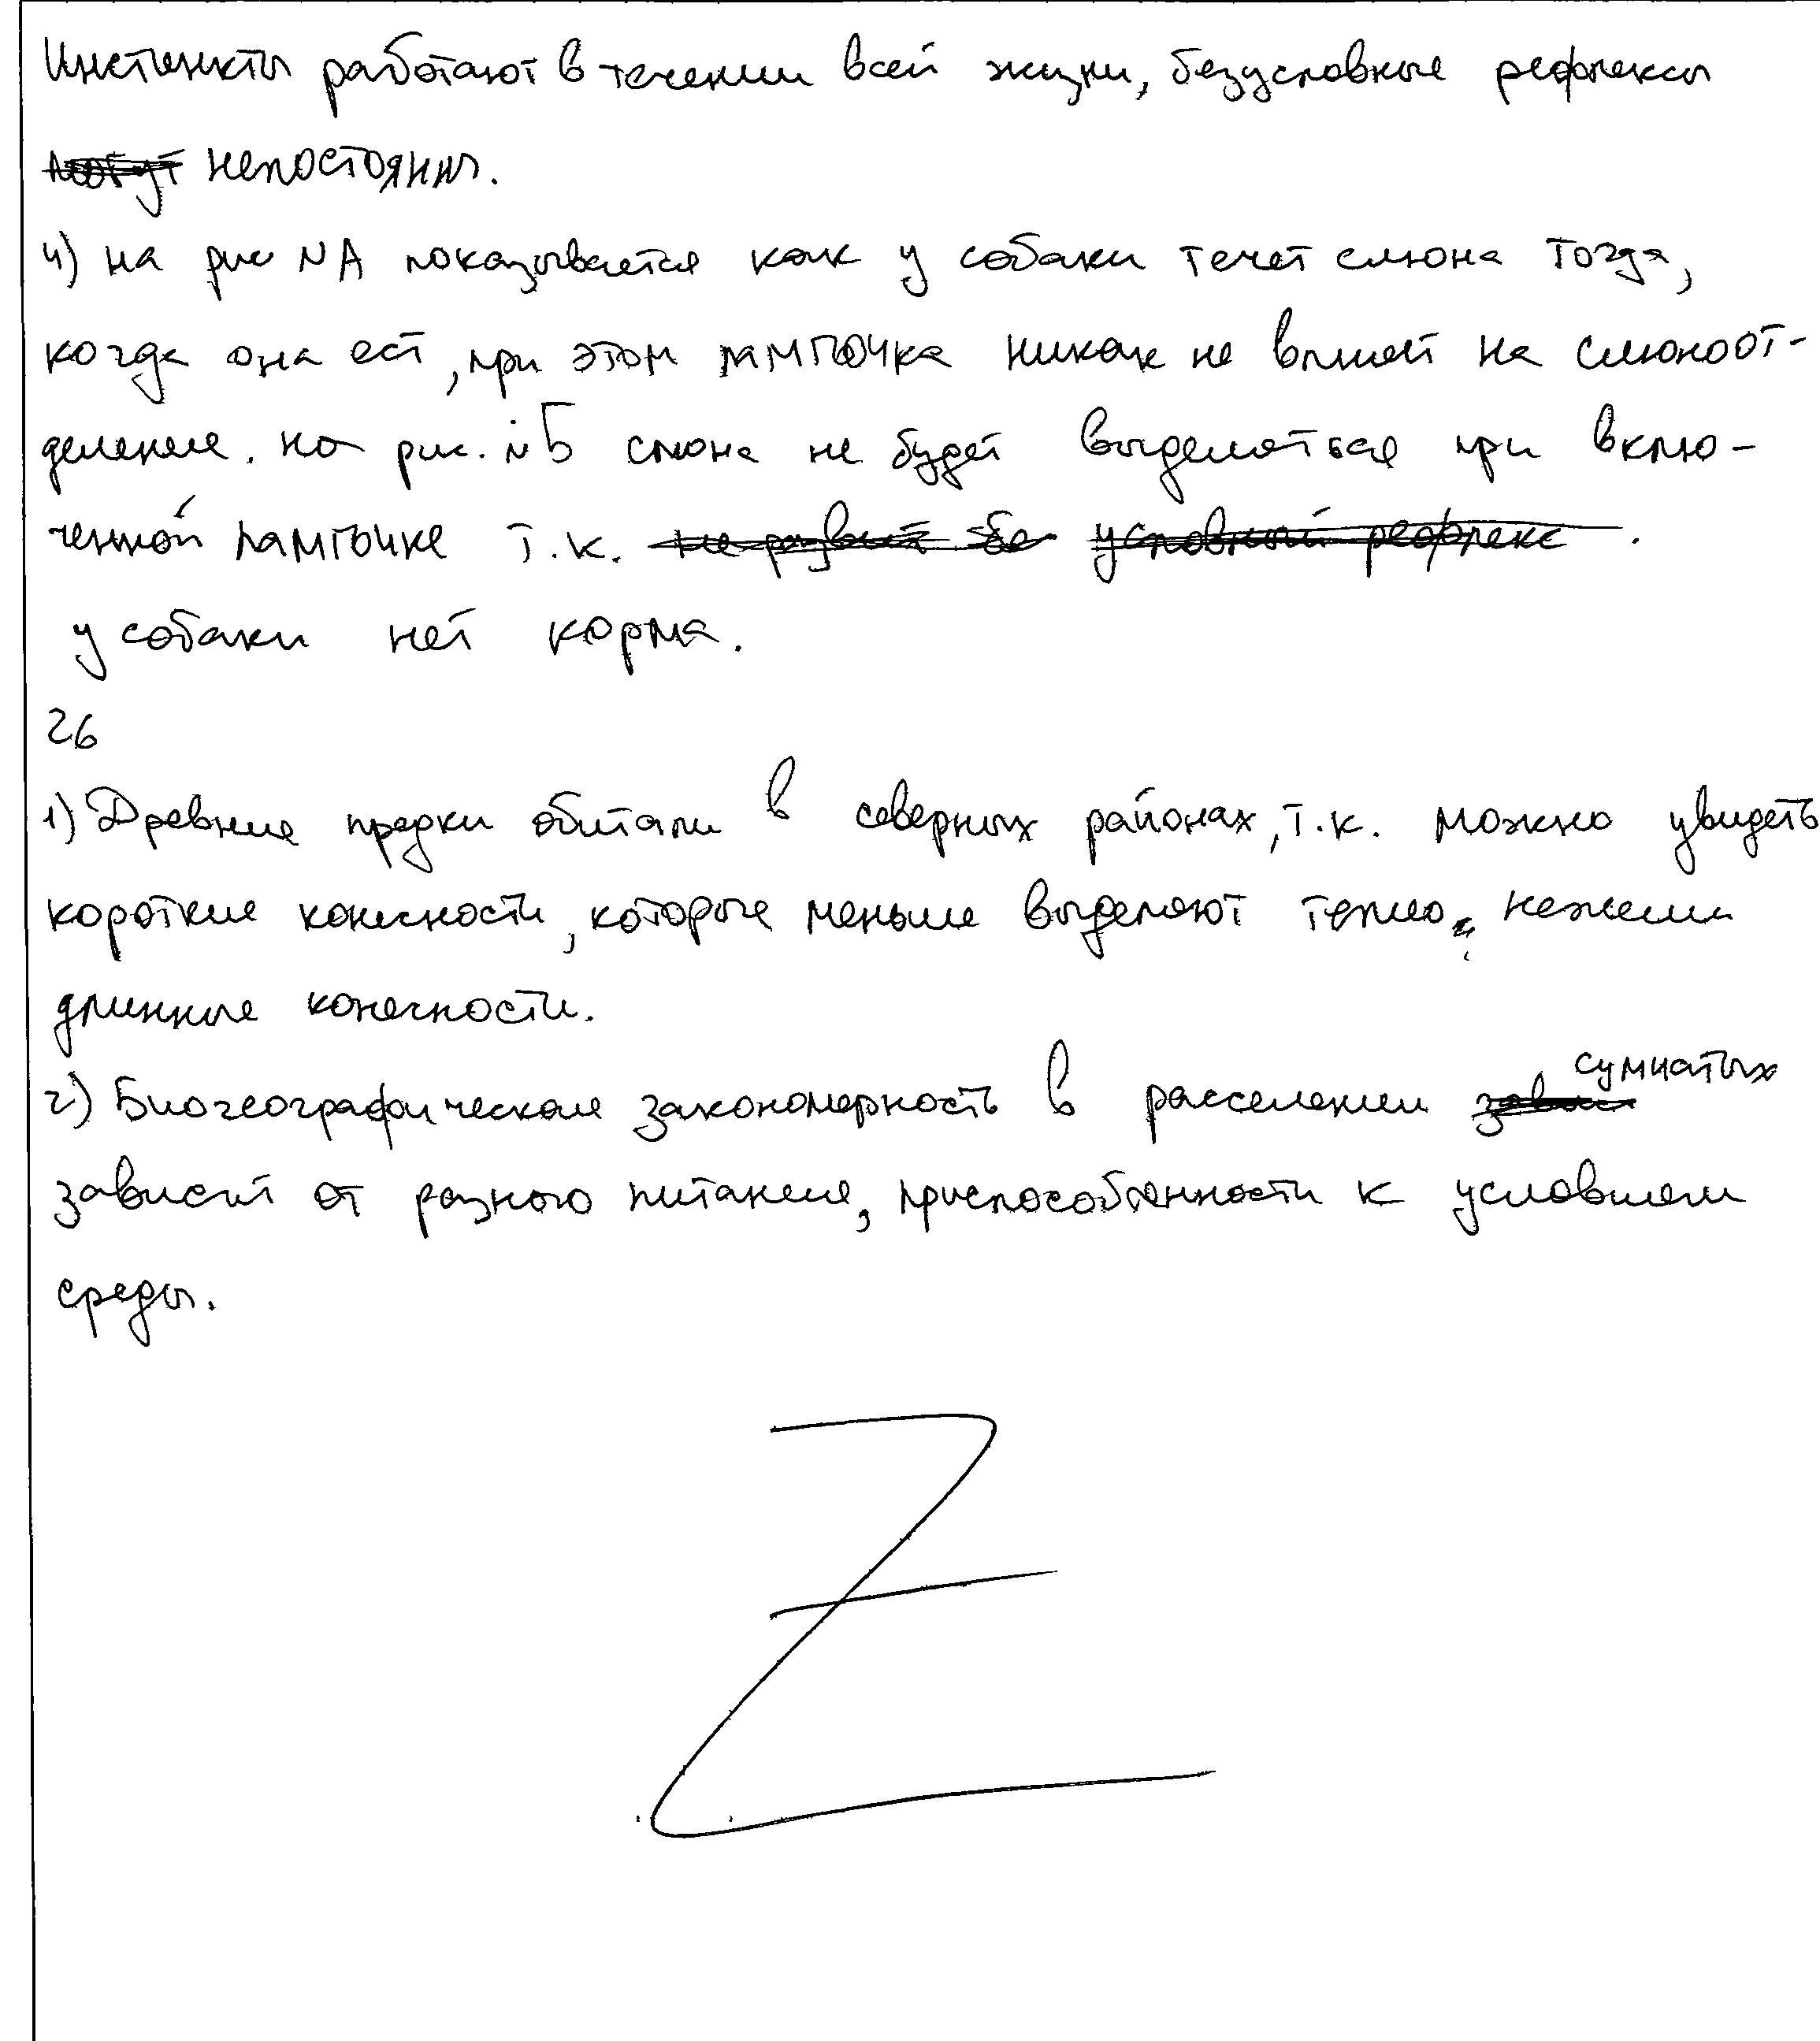 Инстинкты работают в течении всей жизни, безусловные рефлексы
могут непостоянны.
4) на рис №А показывается как у собаки течет слюна тогда,
когда она ест, при этом лампочка никак не влияет на слюноот-
деление. на рис. №Б слюна не будет выделяться при вклю-
ченной лампочке т.к. не развит бе условный рефлекс.
у собаки нет корма.
26
1) Древние предки обитали в северных районах, т.к. можно увидеть
короткие конечности, которые меньше выделяют тепло, нежели
длинные конечности.
2) Биогеографическая закономерность в расселении сумчатых
зависит от разного питания, приспособленности к условиям
среды.
Z